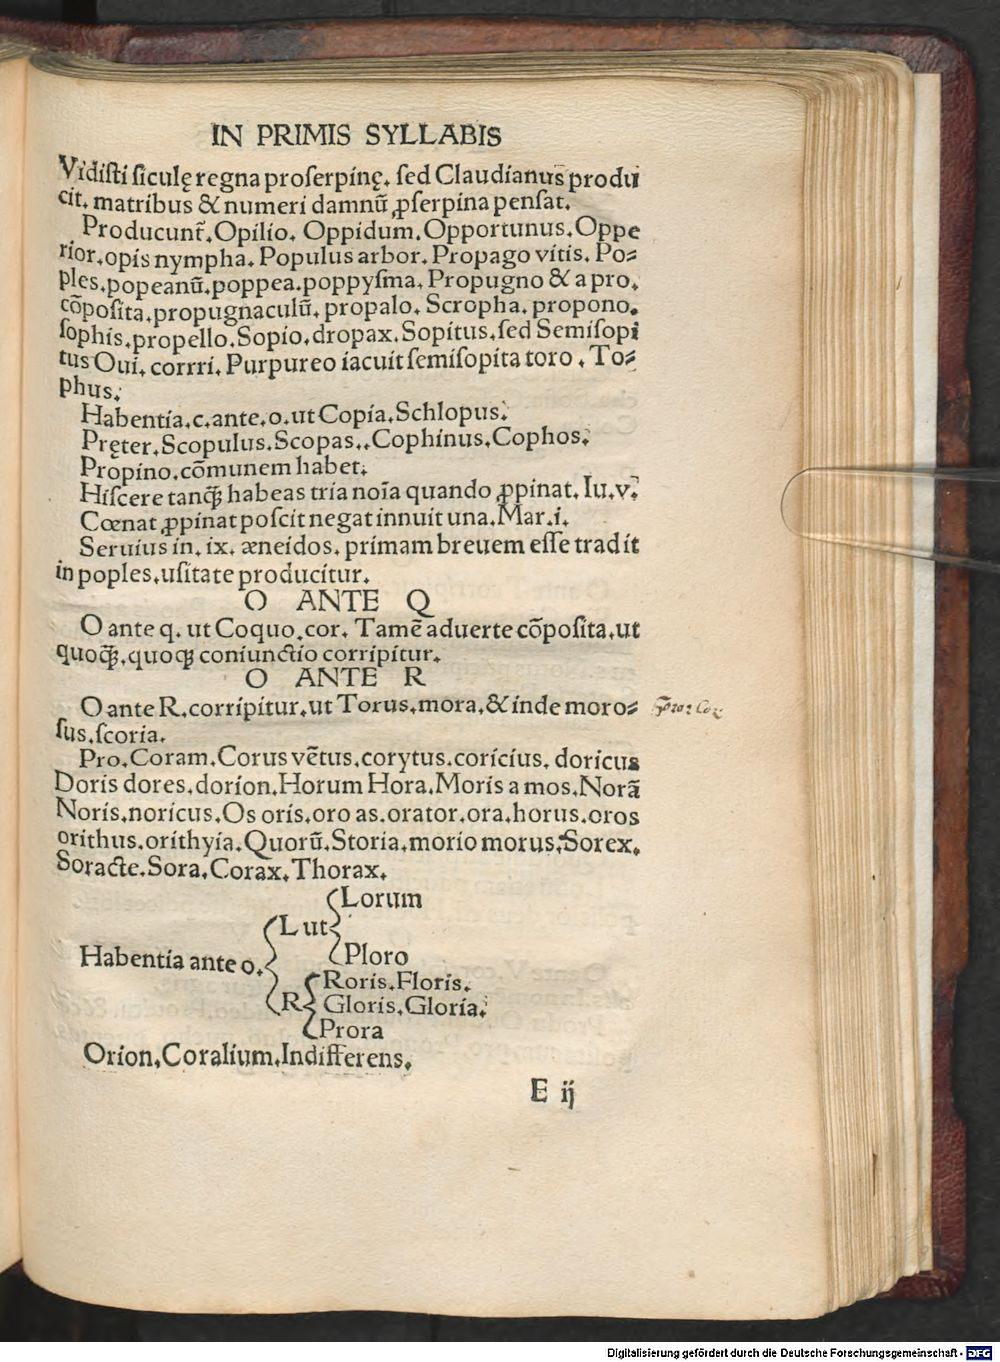 IN PRIMIS SYLLABIS
Vidisti siculę regna proserpinę. sed Claudianus produ
cit. matribus & numeri damnũ ꝓserpina pensat.
Producunt̃. Opilio. Oppidum. Opportunus. Oppe
rior. opis nympha. Populus arbor. Propago vitis. Po⸗
ples. popeanũ. poppea. poppysma. Propugno & a pro.
cõposita. propugnaculũ. propalo. Scropha. propono.
sophis. propello. Sopio. dropax. Sopitus. sed Semisopi
tus Oui. corrri. Purpureo iacuit semisopita toro. To⸗
phus.
Habentia. c. ante. o. ut Copia. Schlopus.
Pręter. Scopulus. Scopas.. Cophinus. Cophos.
Propino. cõmunem habet.
Hiscere tanꝗ̃ habeas tria noĩa quando ꝓpinat. Iu. v.
Cœnat ꝓpinat poscit negat innuit una. Mar. i.
Seruius in. ix. æneidos. primam breuem esse tradit
in poples. usitate producitur.
O ANTE Q
O ante q. ut Coquo. cor. Tamẽ aduerte cõposita. ut
quoꝗ̃. quoꝗ coniunctio corripitur.
O ANTE R
O ante R. corripitur. ut Torus. mora. & inde moro⸗
sus. scoria.
Pro. Coram. Corus vẽtus. corytus. coricius. doricus
Doris dores. dorion. Horum Hora. Moris a mos. Norã
Noris. noricus. Os oris. oro as. orator. ora. horus. oros
orithus. orithyia. Quorũ. Storia. morio morus. Sorex.
Soracte. Sora. Corax. Thorax.
Lorum
L ut
Ploro
Habentia ante o.
Roris. Floris.
R Gloris. Gloria.
Prora
Orion. Coralium. Indifferens.
E ij
Digitalisierung gefördert durch die Deutsche Forschungsgemeinschaft - DFG